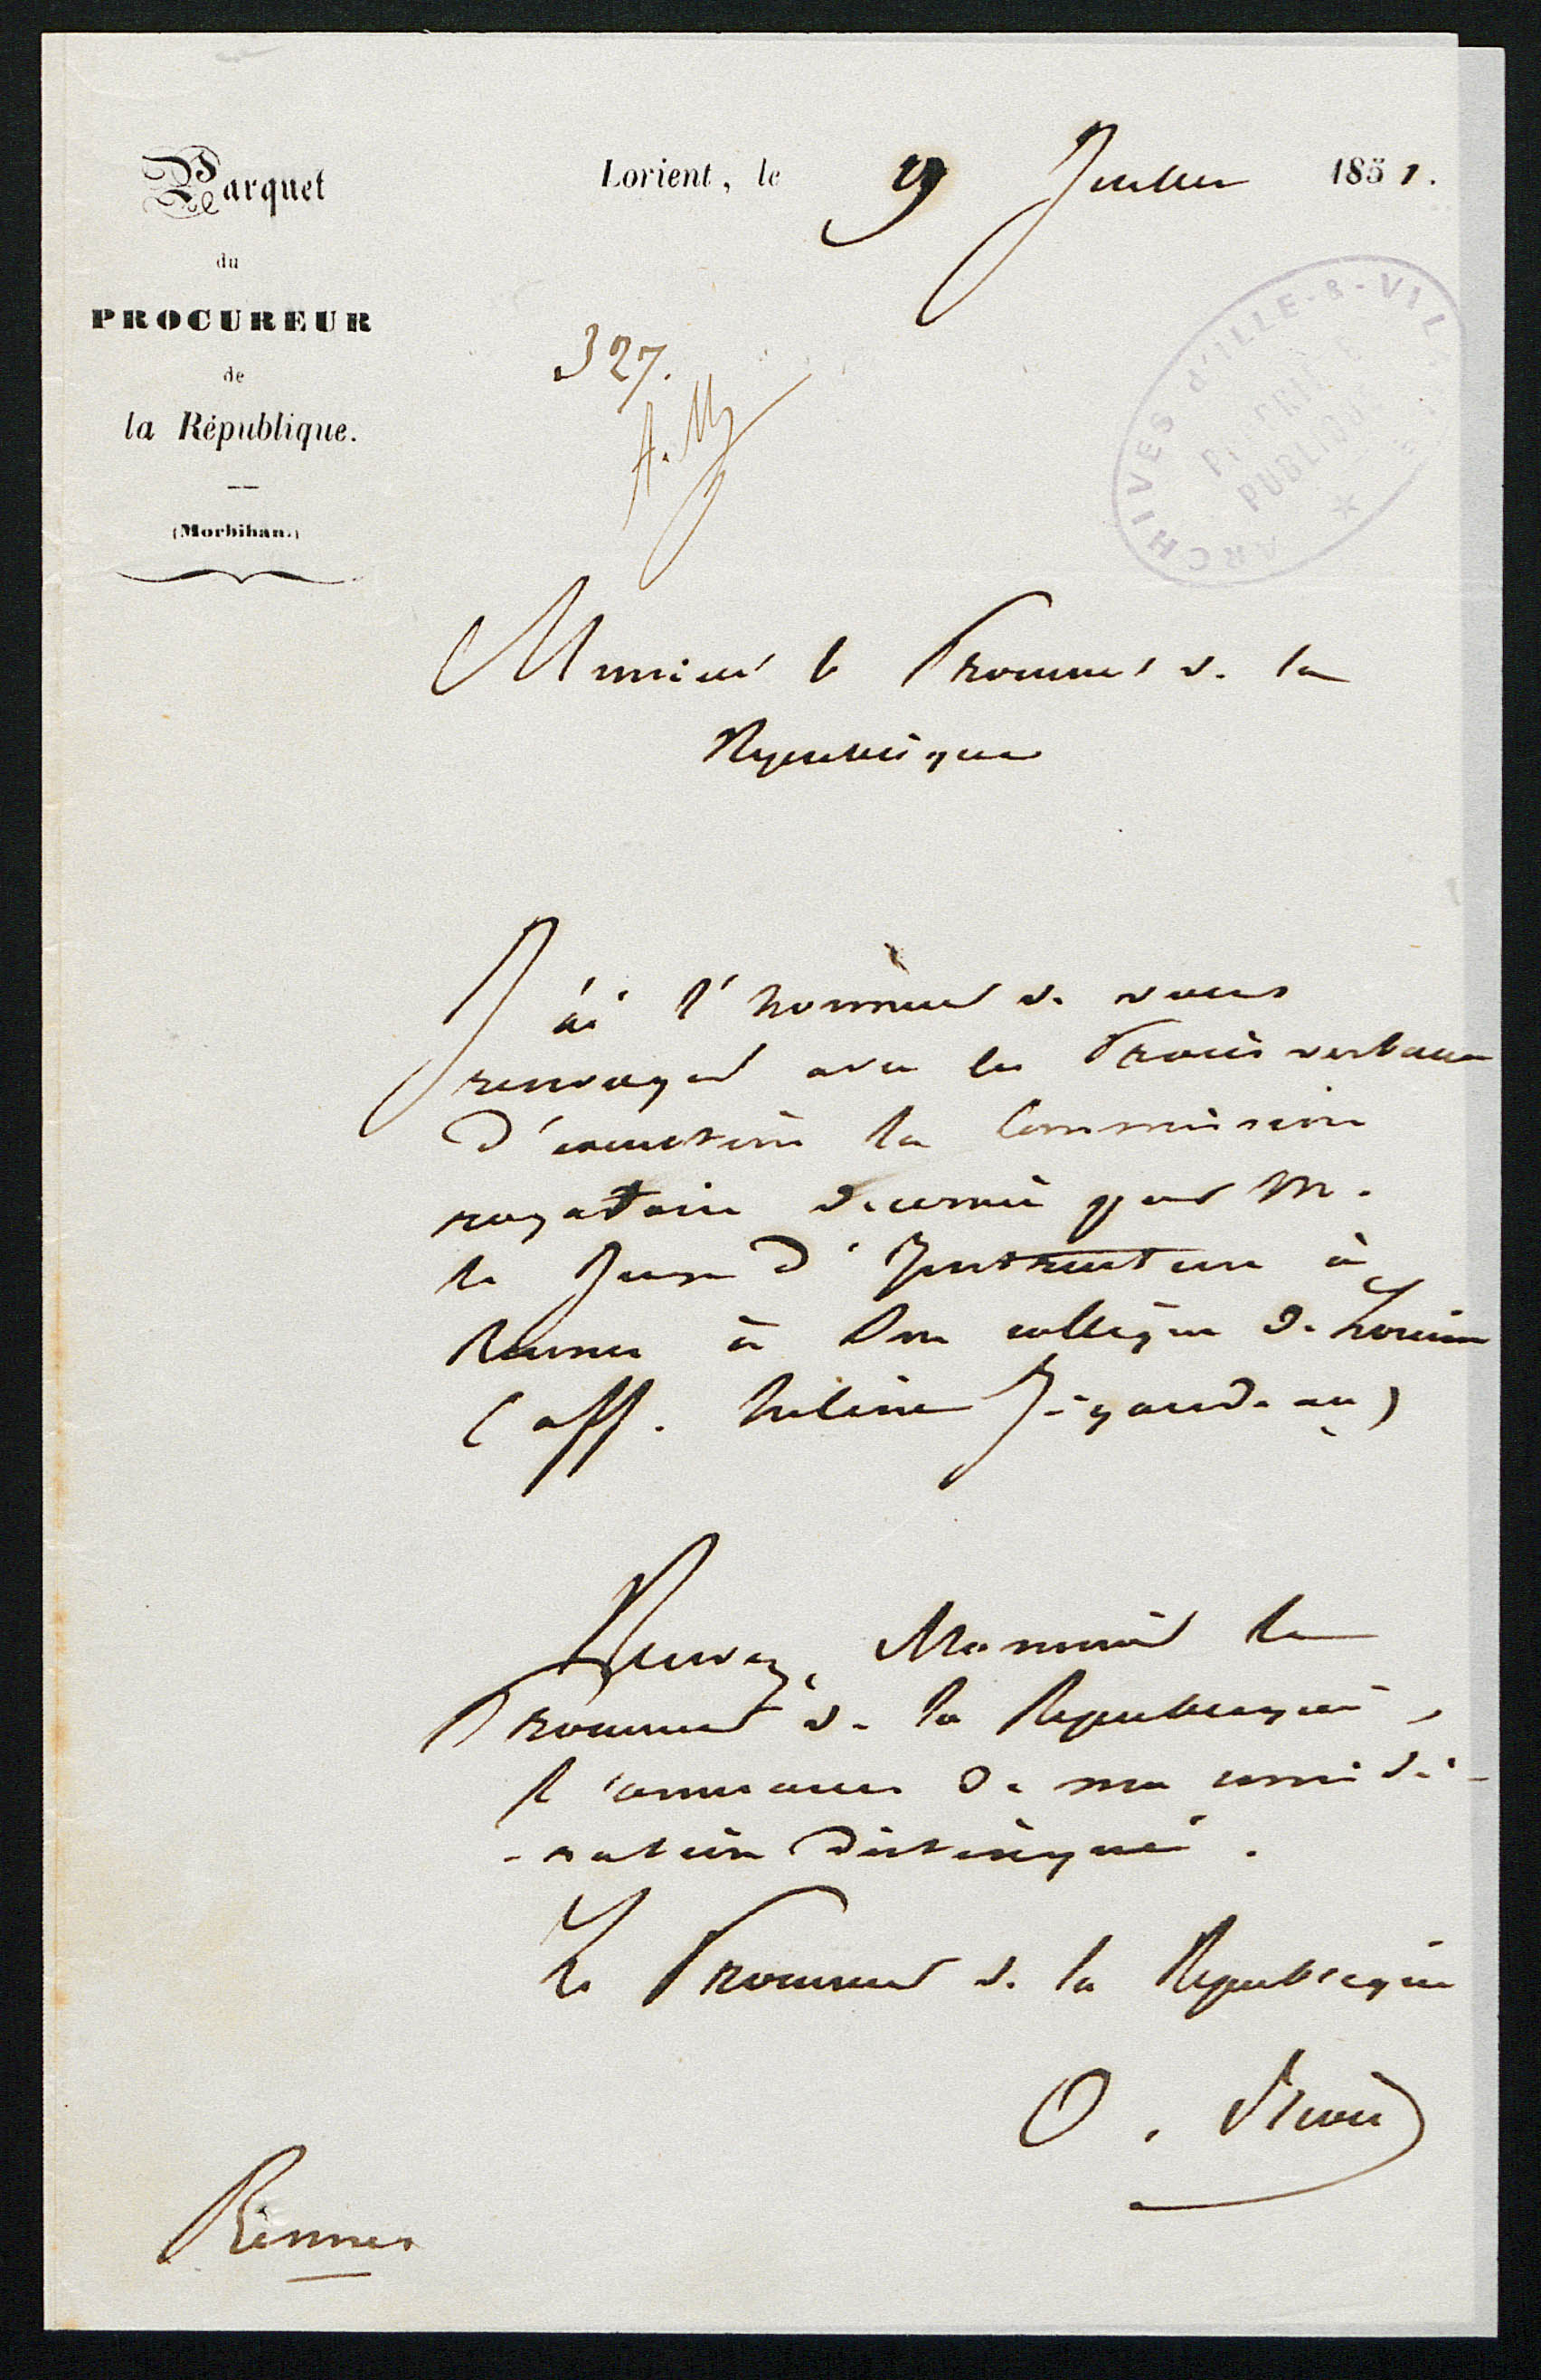 Parquet
du
PROCUREUR
de
la République.
(Morbihan.)
Lorient, le 9 Juillet 1851.
327.
A. M
ARCHIVES d'ILLE-&-VIL
PROPRIÉTÉ
PUBLIQUE
Monsieur le Procureur de la
République
J'ai l'honneur de vous
renvoyer avec les Procès verbaux
d'exécution la Commission
rogatoire décernée par M.
le Juge d'Instruction à
Rennes à Son collègue de Lorient
(aff. hélène Jégaudeau)
Recevez, Monsieur le
Procureur de la République,
l'assurance de ma considé-
-ration distinguée.
Le Procureur de la République
O.
Rennes